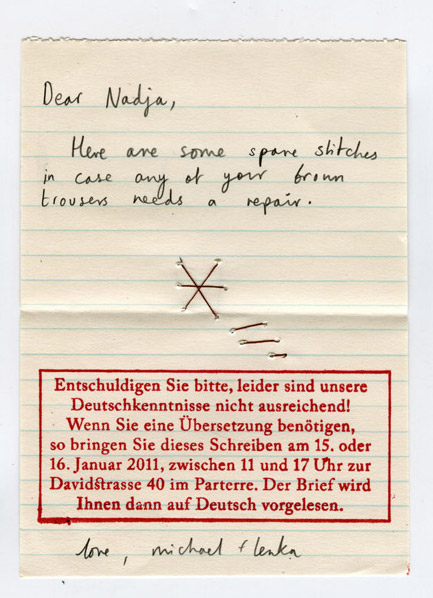 Dear Nadja,
Here are some spare stitches
in case any of your brown
trousers needs a repair.
Entschuldigen Sie bitte, leider sind unsere
Deutschkenntnisse nicht ausreichend!
Wenn Sie eine Übersetzung benötigen,
so bringen Sie dieses Schreiben am 15. oder
16. Januar 2011, zwischen 11 und 17 Uhr zur
Davidstrasse 40 im Parterre. Der Brief wird
Ihnen dann auf Deutsch vorgelesen.
love, michael + lenka